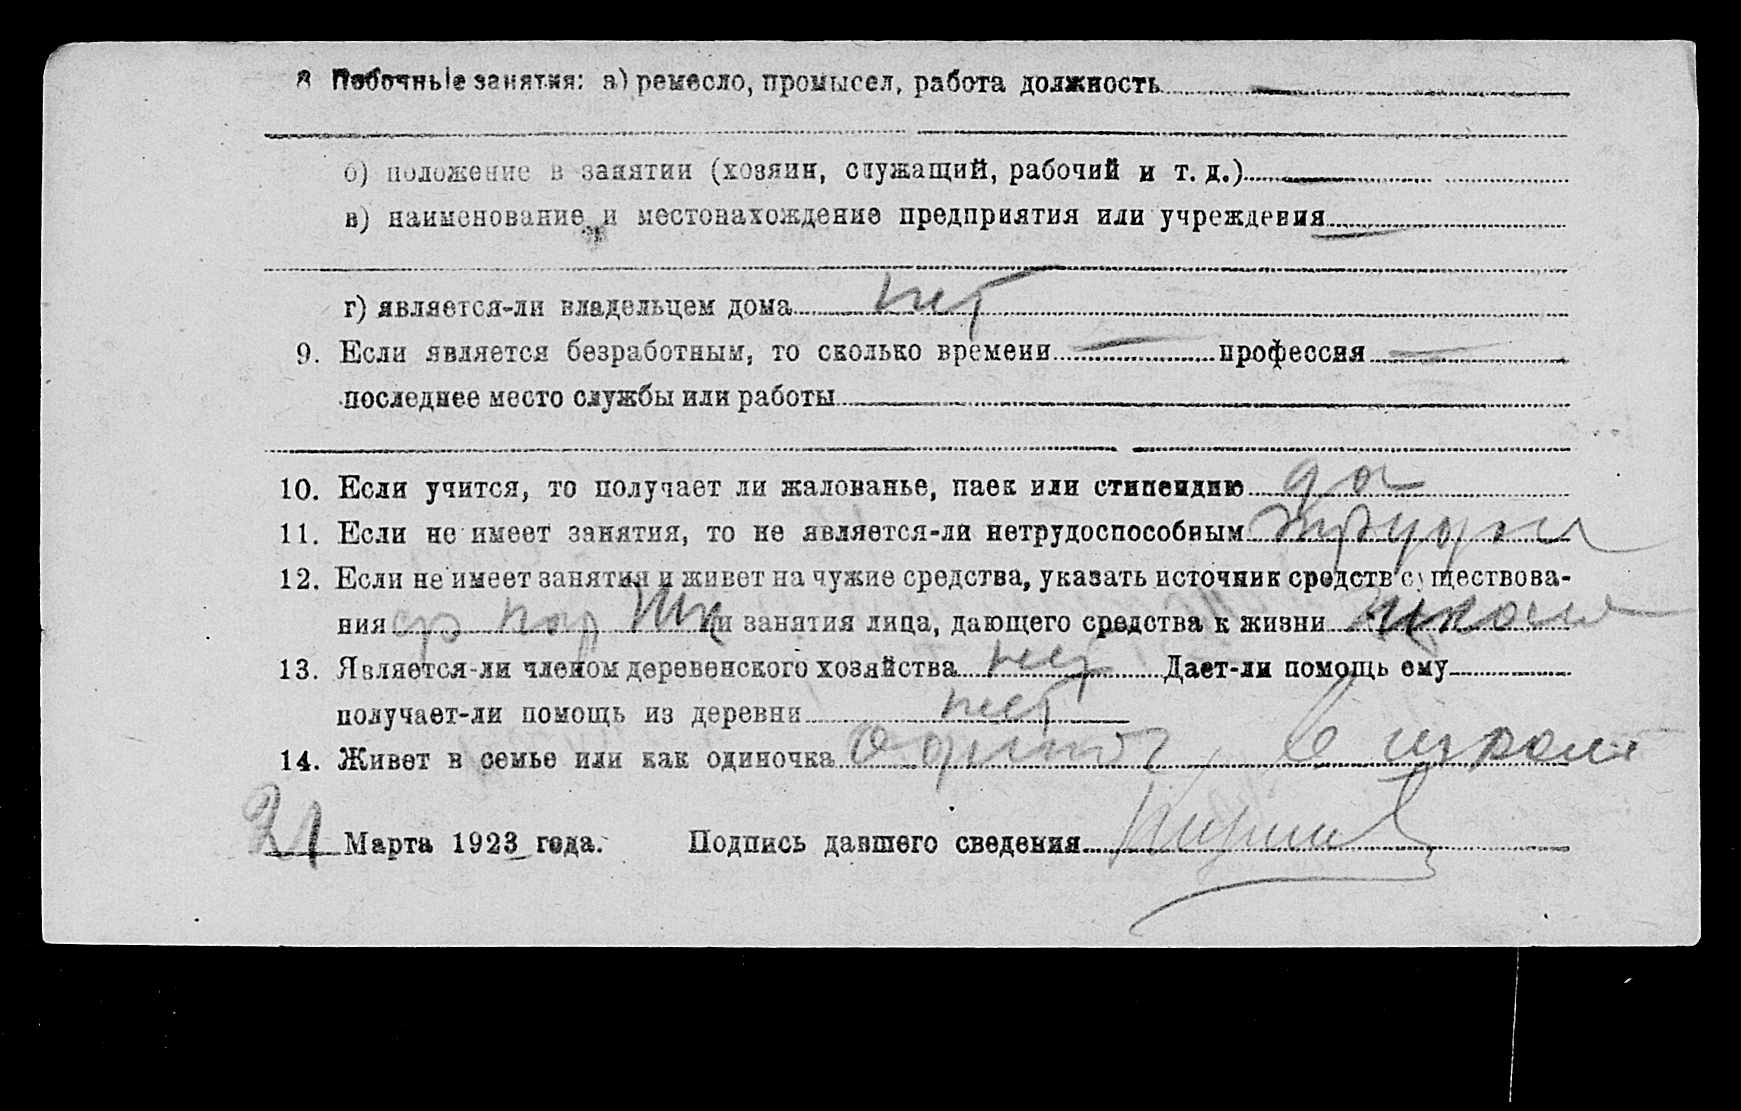 8 Побочные занятия: а) ремесло, промысел, работа должность —
б) положение в занятии (хозяин, служащий, рабочий и т. д.) —
в) наименование и местонахождение предприятия или учреждения —
г) является-ли владельцем дома нет
9. Если является безработным, то сколько времени — профессия —
последнее место службы или работы
10. Если учится, то получает ли жалованье, паек или стипендию да
11. Если не имеет занятия, то не является-ли нетрудоспособным
12. Если не имеет занятия и живет на чужие средства, указать источник средств существова-
ния и занятия лица, дающего средства к жизни
13. Является-ли членом деревенского хозяйства нет Дает-ли помощь ему
получает-ли помощь из деревни нет
14. Живет в семье или как одиночка одиноч в школе
21 Марта 1923 года. Подпись давшего сведения